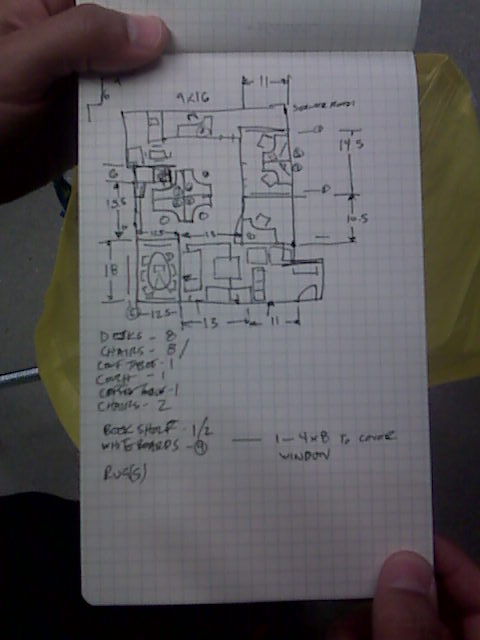 11
9x16
14.5
6
13.5
10.5
12.5
13
18
12.5
13
11
DESKS - 8
CHAIRS - 8/
CONF TABLE - 1
COUCH - 1
COFFEE TABLE - 1
CHAIRS - 2
BOOK SHELF - 1/2
WHITEBOARDS - 9 —— 1 - 4x8 TO COVER
WINDOW
RUG(S)